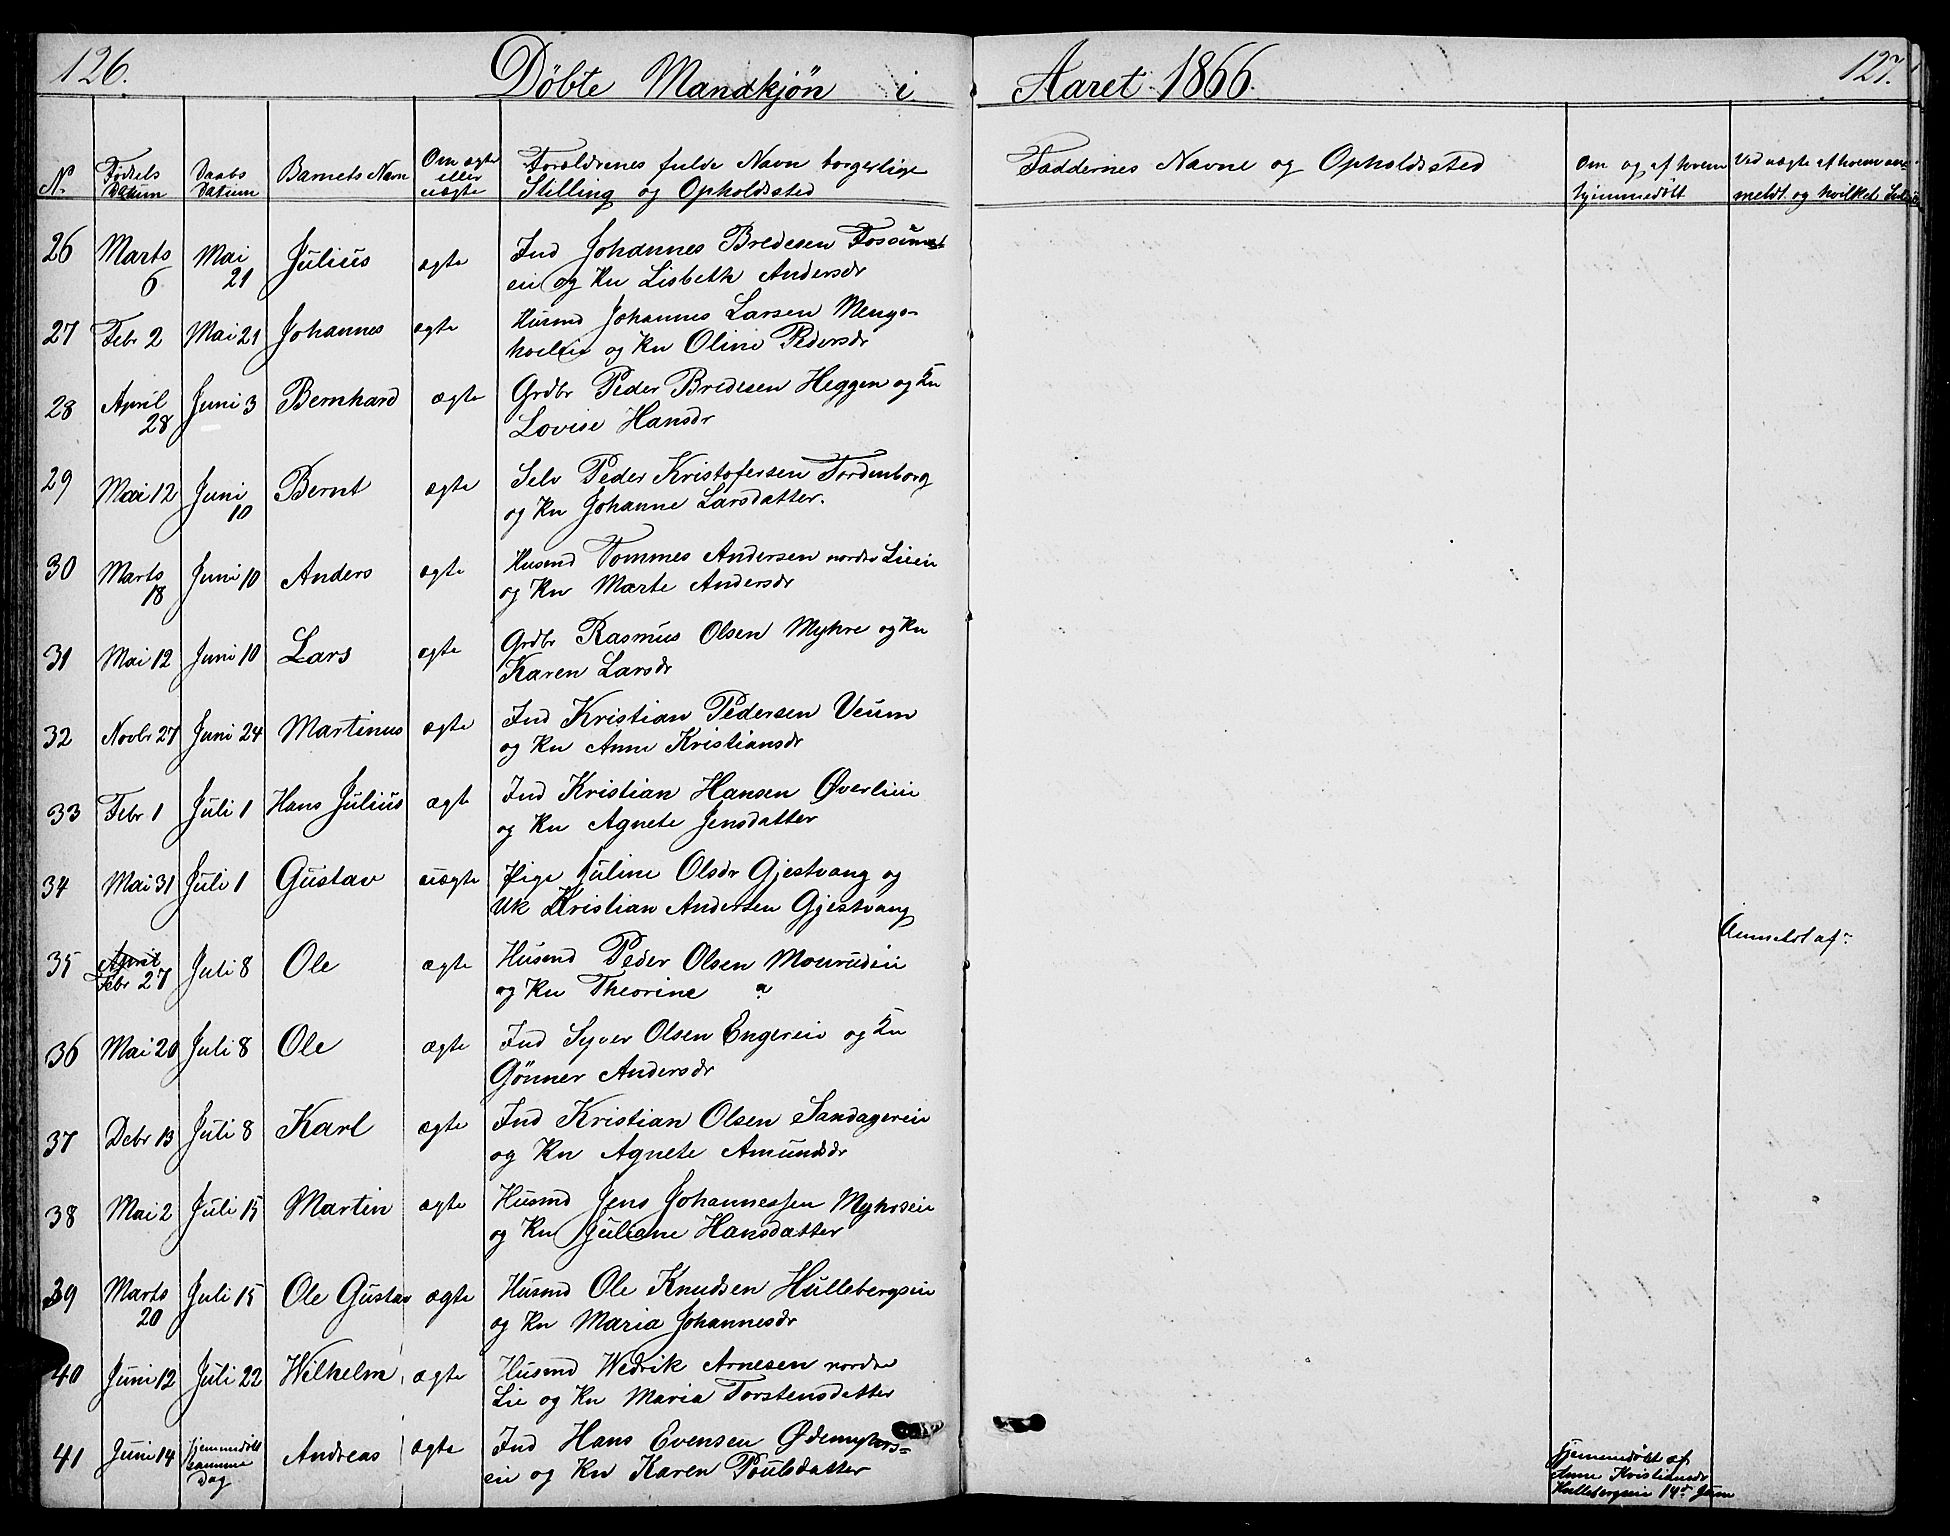 126.
Døbte Mandkjøn i
Aaret 1866.
127.
N.
Fødsels Datum
Daabs Datum
Barnets Navn
Om ægte eller uægte
Forældrenes fulde Navn borgerlige
Stilling og Opholdssted
Faddernes Navne og Opholdssted
Om og af hvem
hjemmedøbt
Ved uægte af hvem an-
meldt og hvilket
26 Marts 6 Mai 21 Julius ægte Ind Johannes Bredesen
eie og Kn Lisbeth Andersdr
27 Febr 2 Mai 21 Johannes ægte Husmd Johannes Larsen Mengs-
hoeleie og Kn Oline Pedersdr
28 April 28 Juni 3 Bernhard ægte Grdbr Peder Bredesen Heggen og Kn
Lovise Hansdr
29 Mai 12 Juni 10 Bernt ægte Selv Peder Kristofersen Tordenborg
og Kn Johanne Larsdatter.
30 Marts 18 Juni 10 Anders ægte Husmd Tommes Andersen nordre Lieie
og Kn Marte Andersdr
31 Mai 12 Juni 10 Lars ægte Grdbr Rasmus Olsen Myhre og Kn
Karen Larsdr
32 Novbr 27 Juni 24 Martinus ægte Ind Kristian Pedersen Veum
og Kn Anne Kristiansdr
33 Febr 1 Juli 1 Hans Julius ægte Ind Kristian Hansen Øverlieie
og Kn Agnete Jensdatter
34 Mai 31 Juli 1 Gustav uægte Pige Juline Olsdr Gjestvang og
Uk Kristian Andersen Gjestvang
Anmeldt af
35 April Febr 27 Juli 8 Ole ægte Husmd Peder Olsen Mourudeie
og Kn Theorine
36 Mai 20 Juli 8 Ole ægte Ind Syver Olsen Engereie og Kn
Gønner Andersdr
37 Debr 13 Juli 8 Karl ægte Ind Kristian Olsen Sandagereie
og Kn Agnete Amundsdr
38 Mai 2 Juli 15 Martin ægte Husmd Jens Johannessen Myhrseie
og Kn Juliane Hansdatter
39 Marts 20 Juli 15 Ole Gustav ægte Husmd Ole Knudsen Hullebergseie
og Kn Maria Johannesdr
40 Juni 12 Juli 22 Wilhelm ægte Husmd Wedrik Arnesen nordre
Lie og Kn Maria Torstensdatter
41 Juni 14 hjemmedøbt samme Dag Andreas ægte Ind Hans Evensen Ødemyhrs-
eie og Kn Karen Poulsdatter
hjemmedøbt af
Anne Kristiansdr
Hullebergseie 14de Juni